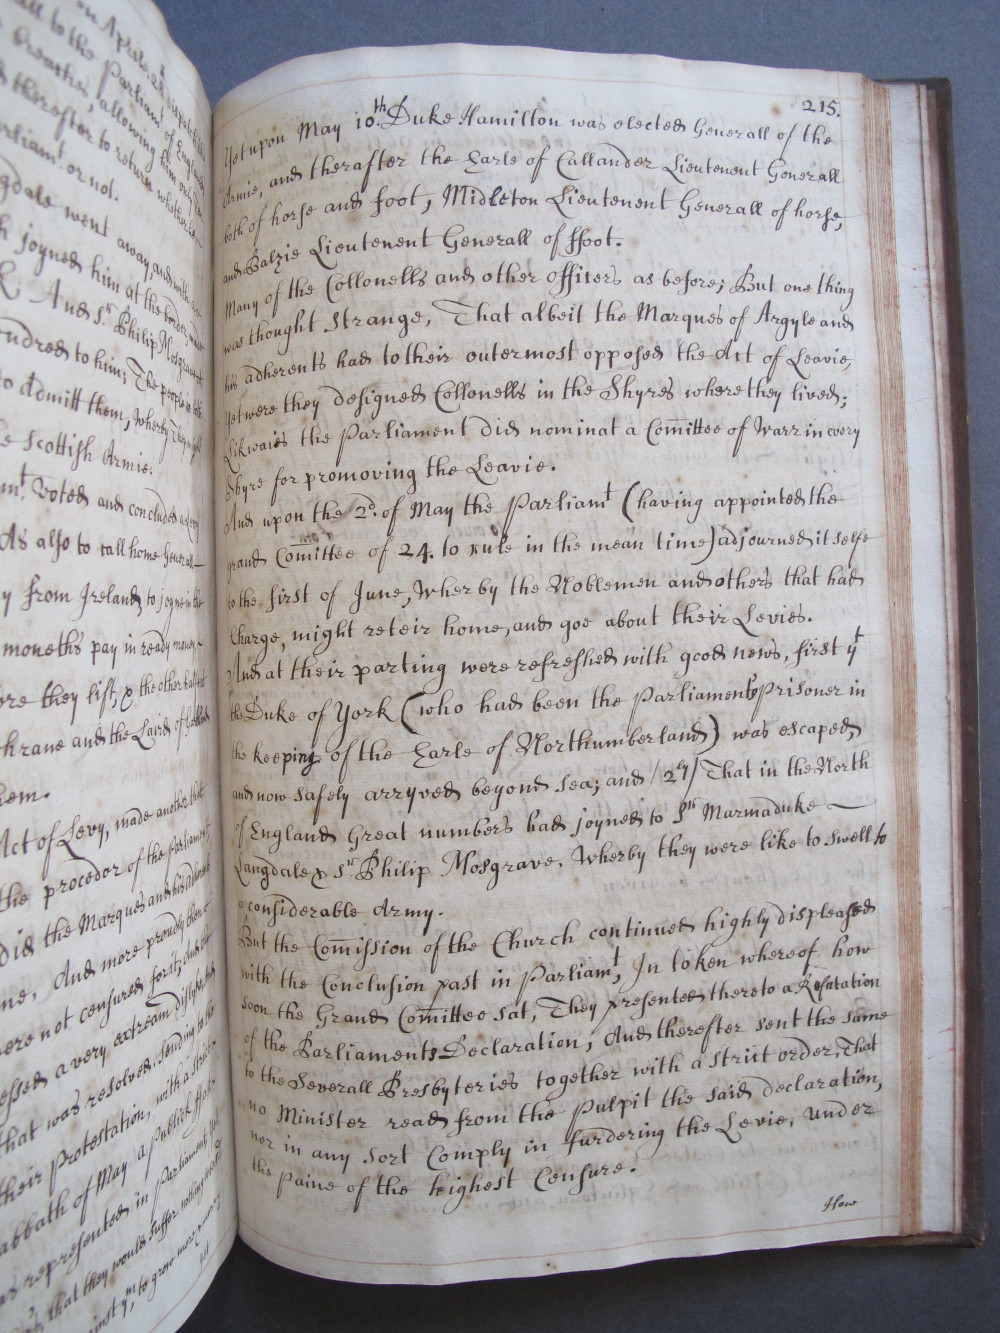 on Aprile 2
all to the Parliamt of England
breathes, allowing him only
thereafter to return whether
Parliamt or not.
gdale went away, and with
joyned him at the border
And Sr Philip Mosgrave
undred to him; The people
to admitt them, Wherby They might
e Scottish Armie.
mt Voted and concluded
As also to call home Generall
y from Ireland, to joyne in the
moneths pay in ready money,
ore they list, & the other half
chrane and the Laird of
hem.
Act of Levy, made another
the procedor of the Parliament
Did the Marques and his adherents
me, And more proudly then
were not censured for it, And
essed a very extream Dislyke,
that was resolved, sending to the
their Protestation, with a strict
abbath of May a Publick
as represented in Parliament,
that they would suffer nothing
inst ym, to grow more
215.
Yet upon May 10th. Duke Hamilton was elected Generall of the
Armie, and therafter the Earle of Callander Lieutenent Generall
both of horse and foot, Midleton Lieutenent Generall of horse,
and Balzie Lieutenent Generall of ffoot.
Many of the Collonells and other officers as before; But one thing
was thought strange, That albeit the Marques of Argyle and
his adherents had to their outermost opposed the Act of Leavie,
Yet were they designed Collonells in the Shyres where they lived;
Likwaies the Parliament did nominat a Com̄ittee of Warr in every
Shyre for promoving the Leavie.
And upon the 2d. of May the Parliamt (having appointed the
grand Com̄ittee of 24. to rule in the mean time) adjourned it selfe
to the first of June, Wherby the Noblemen and others that had
Charge, might reteir home, and goe about their Levies.
And at their parting were refreshed with good news, first yt
the Duke of York (who had been the Parliaments Prisoner in
the keeping of the Earle of Northumberland) was escaped,
and now safely arryved beyond sea; and /2ly/ That in the North
of England Great numbers had joyned to Sr Marmaduke
Langdale & Sr Philip Mosgrave, Wherby they were like to swell to
a considerable Army.
But the Com̄ission of the Church continued highly displeased
with the Conclusion past in Parliamt, In token whereof how
soon the Grand Com̄ittee sat, They presented thereto a Refutation
of the Parliaments Declaration, And therefter sent the same
to the Severall Presbyteries together with a strict order, That
no Minister read from the Pulpit the said declaration,
nor in any sort Comply in furdering the Levie, Under
the Paine of the highest Censure.
How